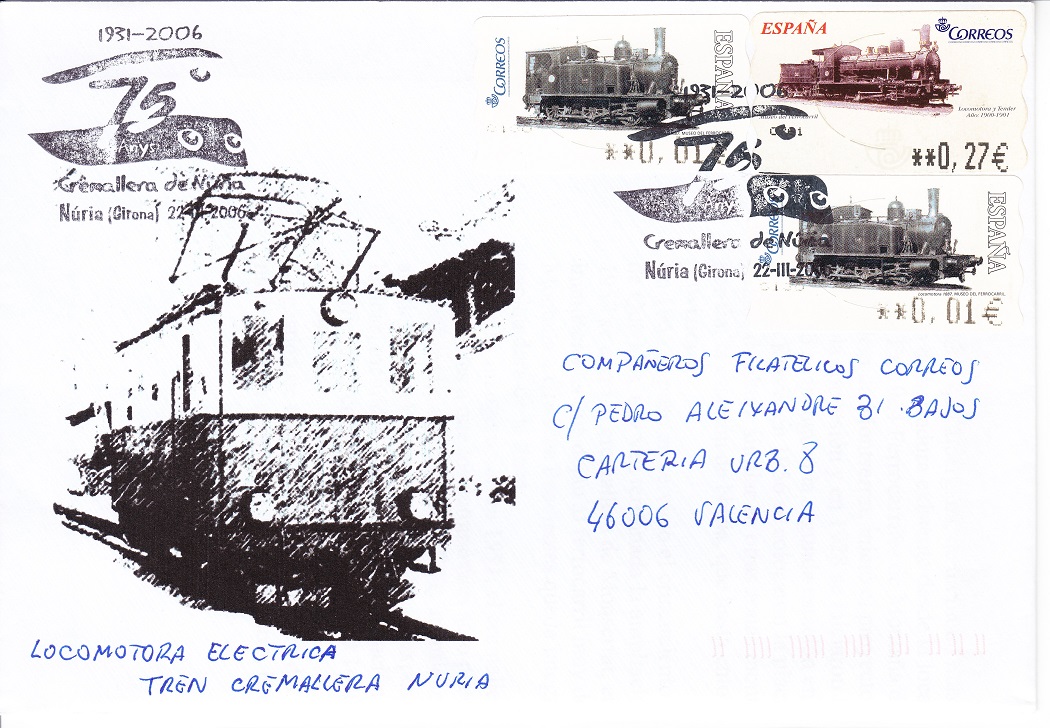 1931-2006
75º
Anys
Cremallera de Núria
Núria (Girona) 22-III-2006
CORREOS
ESPAÑA
MUSEO DEL FERROCARRIL
**0,01€
ESPAÑA
CORREOS
Locomotora y Tender
Año: 1900-1901
Museo del Ferrocarril
**0,27€
1931-2006
75º
Cremallera de Núria
Núria (Girona) 22-III-2006
CORREOS
ESPAÑA
Locomotora 1887. MUSEO DEL FERROCARRIL
**0,01€
COMPAÑEROS FILATELICOS CORREOS
C/ PEDRO ALEIXANDRE 31 BAJOS
CARTERIA URB. 8
46006 VALENCIA
LOCOMOTORA ELECTRICA
TREN CREMALLERA NURIA